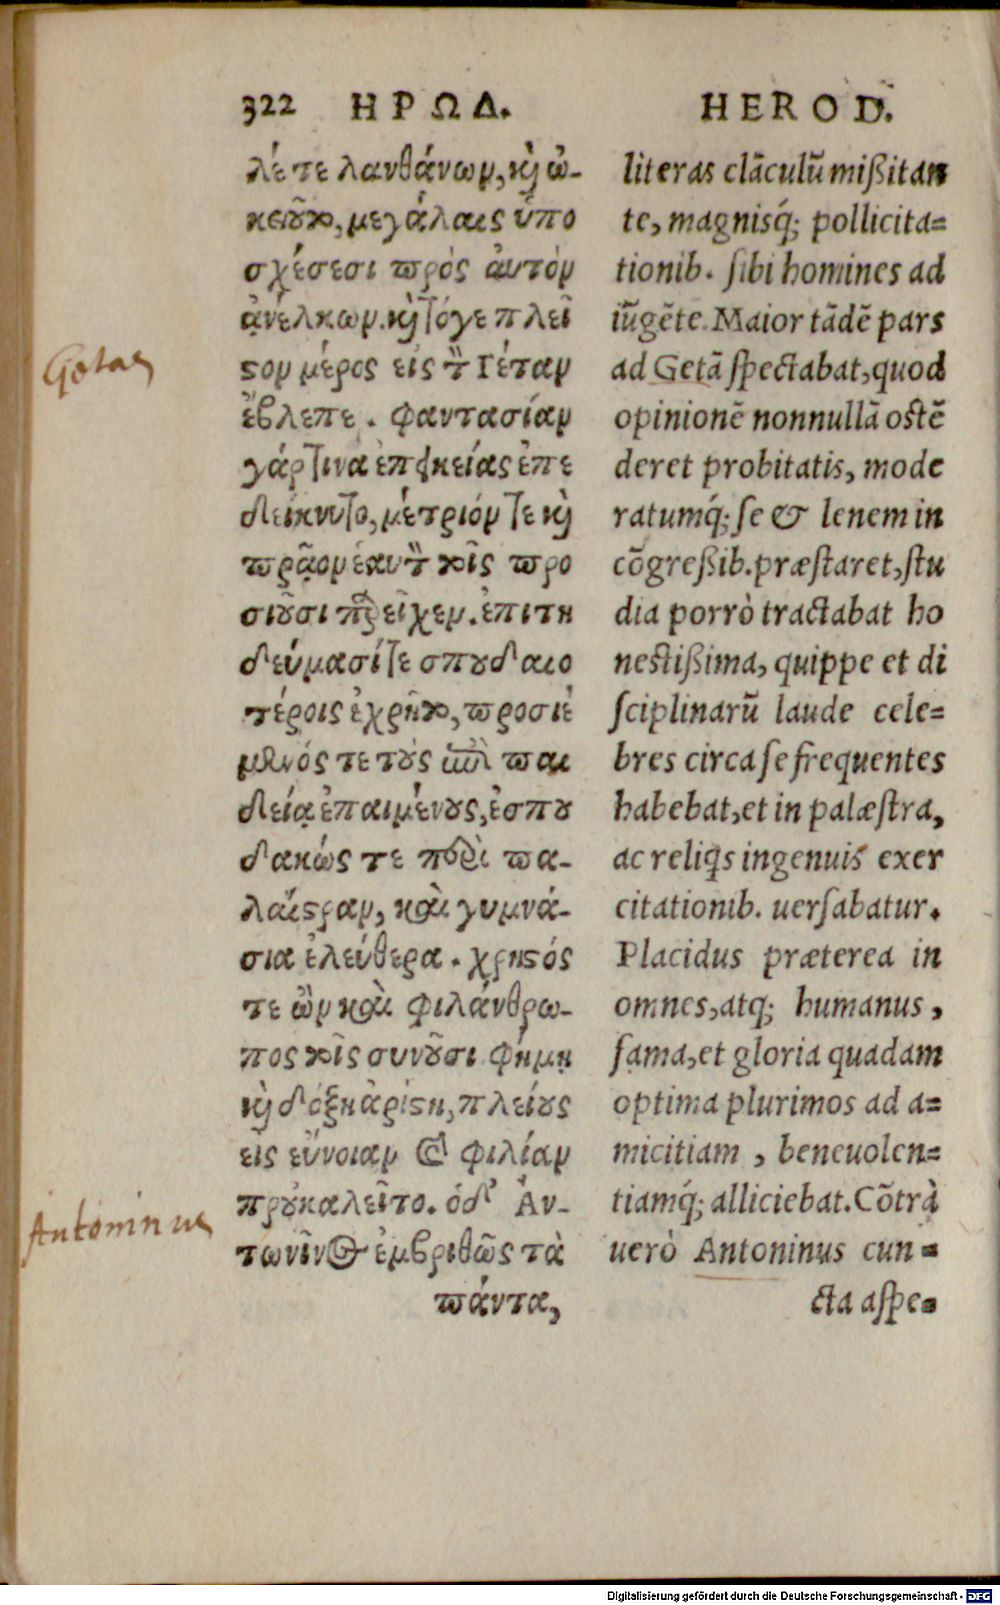 322 ΗΡΩΔ.
λέ τε λανθάνων, κὶ ὠ-
κειοῦτο, μεγάλαις ὑπο
σχέσεσι πρὸς αὑτὸν
ἀνέλκων. κὶ τόγε πλεῖ
στον μέρος εἰς τὸν Γέταν
ἔβλεπε. φαντασίαν
γάρ τινα ἐπιεικείας ἐπε
δείκνυτο, μέτριόν τε κὶ
πρᾷον ἑαυτὸν τοῖς προ
σιοῦσι παρεῖχεν. ἐπιτη
δεύμασί τε σπουδαιο
τέροις ἐχρῆτο, προσιέ
μενός τε τοὺς ἐπὶ παι
δείᾳ ἐπαιμένους, ἐσπου
δακώς τε περὶ πα-
λαίστραν, καὶ γυμνά-
σια ἐλεύθερα. χρηστός
τε ὢν καὶ φιλάνθρω-
πος τοῖς συνοῦσι φήμῃ
κὶ δόξῃ ἀρίστῃ, πλείους
εἰς εὔνοιαν καὶ φιλίαν
προυκαλεῖτο. ὁδ' Ἀν-
τωνῖνος ἐμβριθῶς τὰ
πάντα,
HEROD.
literas clāculū mißitan
te, magnisq́; pollicita=
tionib. sibi homines ad
iūgēte. Maior tādē pars
ad Getā spectabat, quod
opinionē nonnullā ostē
deret probitatis, mode
ratumq́; se & lenem in
cōgreßib. præstaret, stu
dia porrò tractabat ho
nestißima, quippe et di
sciplinarū laude cele=
bres circa se frequentes
habebat, et in palæstra,
ac reliq̄s ingenuis exer
citationib. uersabatur.
Placidus præterea in
omnes, atq; humanus,
fama, et gloria quadam
optima plurimos ad a=
micitiam, beneuolen=
tiamq́; alliciebat. Cōtrà
uerò Antoninus cun=
cta aspe=
Getas
Antoninus
Digitalisierung gefördert durch die Deutsche Forschungsgemeinschaft - DFG